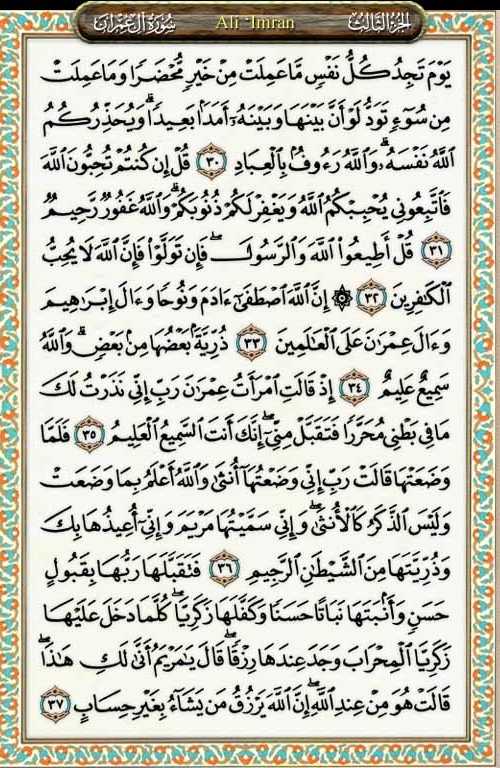 سُورَةُ آلِ عِمْرَانَ Ali 'Imran الجُزْءُ الثَّالِثُ
يَوْمَ تَجِدُ كُلُّ نَفْسٍ مَّا عَمِلَتْ مِنْ خَيْرٍ مُّحْضَرًا وَمَا عَمِلَتْ
مِن سُوٓءٍ تَوَدُّ لَوْ أَنَّ بَيْنَهَا وَبَيْنَهُۥٓ أَمَدَۢا بَعِيدًا ۗ وَيُحَذِّرُكُمُ
ٱللَّهُ نَفْسَهُۥ ۗ وَٱللَّهُ رَءُوفُۢ بِٱلْعِبَادِ ٣٠ قُلْ إِن كُنتُمْ تُحِبُّونَ ٱللَّهَ
فَٱتَّبِعُونِى يُحْبِبْكُمُ ٱللَّهُ وَيَغْفِرْ لَكُمْ ذُنُوبَكُمْ ۗ وَٱللَّهُ غَفُورٌ رَّحِيمٌ
٣١ قُلْ أَطِيعُوا۟ ٱللَّهَ وَٱلرَّسُولَ ۖ فَإِن تَوَلَّوْا۟ فَإِنَّ ٱللَّهَ لَا يُحِبُّ
ٱلْكَٰفِرِينَ ٣٢ ۞ إِنَّ ٱللَّهَ ٱصْطَفَىٰٓ ءَادَمَ وَنُوحًا وَءَالَ إِبْرَٰهِيمَ
وَءَالَ عِمْرَٰنَ عَلَى ٱلْعَٰلَمِينَ ٣٣ ذُرِّيَّةَۢ بَعْضُهَا مِنۢ بَعْضٍ ۗ وَٱللَّهُ
سَمِيعٌ عَلِيمٌ ٣٤ إِذْ قَالَتِ ٱمْرَأَتُ عِمْرَٰنَ رَبِّ إِنِّى نَذَرْتُ لَكَ
مَا فِى بَطْنِى مُحَرَّرًا فَتَقَبَّلْ مِنِّىٓ ۖ إِنَّكَ أَنتَ ٱلسَّمِيعُ ٱلْعَلِيمُ ٣٥ فَلَمَّا
وَضَعَتْهَا قَالَتْ رَبِّ إِنِّى وَضَعْتُهَآ أُنثَىٰ وَٱللَّهُ أَعْلَمُ بِمَا وَضَعَتْ
وَلَيْسَ ٱلذَّكَرُ كَٱلْأُنثَىٰ ۖ وَإِنِّى سَمَّيْتُهَا مَرْيَمَ وَإِنِّىٓ أُعِيذُهَا بِكَ
وَذُرِّيَّتَهَا مِنَ ٱلشَّيْطَٰنِ ٱلرَّجِيمِ ٣٦ فَتَقَبَّلَهَا رَبُّهَا بِقَبُولٍ
حَسَنٍ وَأَنۢبَتَهَا نَبَاتًا حَسَنًا وَكَفَّلَهَا زَكَرِيَّا ۖ كُلَّمَا دَخَلَ عَلَيْهَا
زَكَرِيَّا ٱلْمِحْرَابَ وَجَدَ عِندَهَا رِزْقًا ۖ قَالَ يَٰمَرْيَمُ أَنَّىٰ لَكِ هَٰذَا ۖ
قَالَتْ هُوَ مِنْ عِندِ ٱللَّهِ ۖ إِنَّ ٱللَّهَ يَرْزُقُ مَن يَشَآءُ بِغَيْرِ حِسَابٍ ٣٧